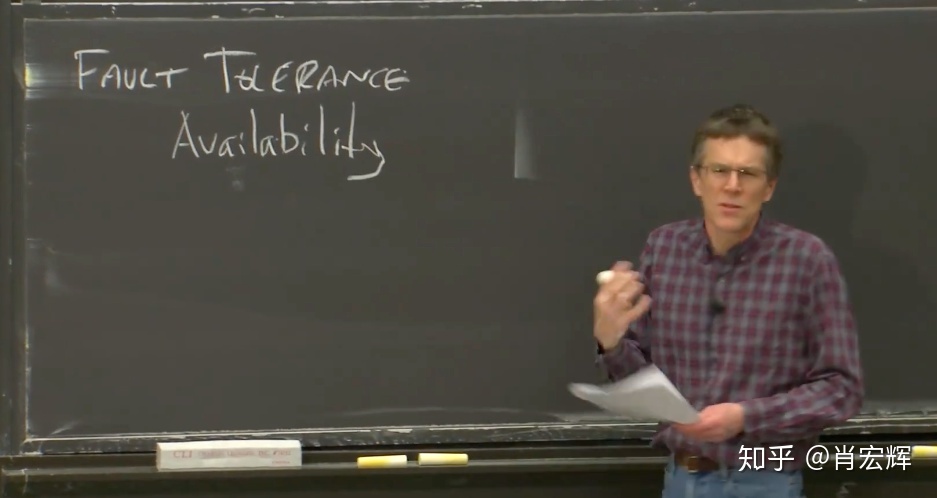 FAULT TOLERANCE
Availability
知乎 @肖宏辉